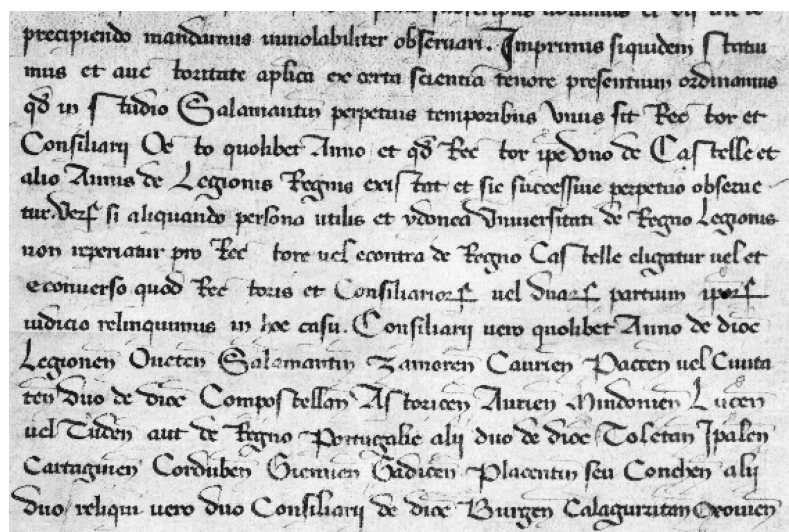 precipiendo mandamus inviolabiliter observari. Imprimis siquidem statui
mus et auctoritate aplica ex certa scientia tenore presentium ordinamus
qd in studio Salamantin perpetuis temporibus unus sit Rector et
Consiliarii Octo quolibet Anno et qd Rector ipe uno de Castelle et
alio Annis de Legionis Regnis existat et sic successive perpetuo observe
tur. Verum si aliquando persona utilis et ydonea Universitati de Regno Legionis
non reperiatur pro Rectore vel econtra de Regno Castelle eligatur vel et
econverso quod Rectoris et Consiliarior vel duar partium ipor
iudicio relinquimus in hoc casu. Consiliarii vero quolibet Anno de dioc
Legionen Oveten Salamantin Zamoren Caurien Pacen vel Civita
ten duo de dioc Compostellan Astoricen Aurien Mindonien Lucen
vel Tuden aut de Regno Portugalie alii duo de dioc Toletan Ispalen
Cartaginen Corduben Giennen Gadicen Placentin seu Conchen alii
duo reliqui vero duo Consiliarii de dioc Burgen Calaguritan Oxomen